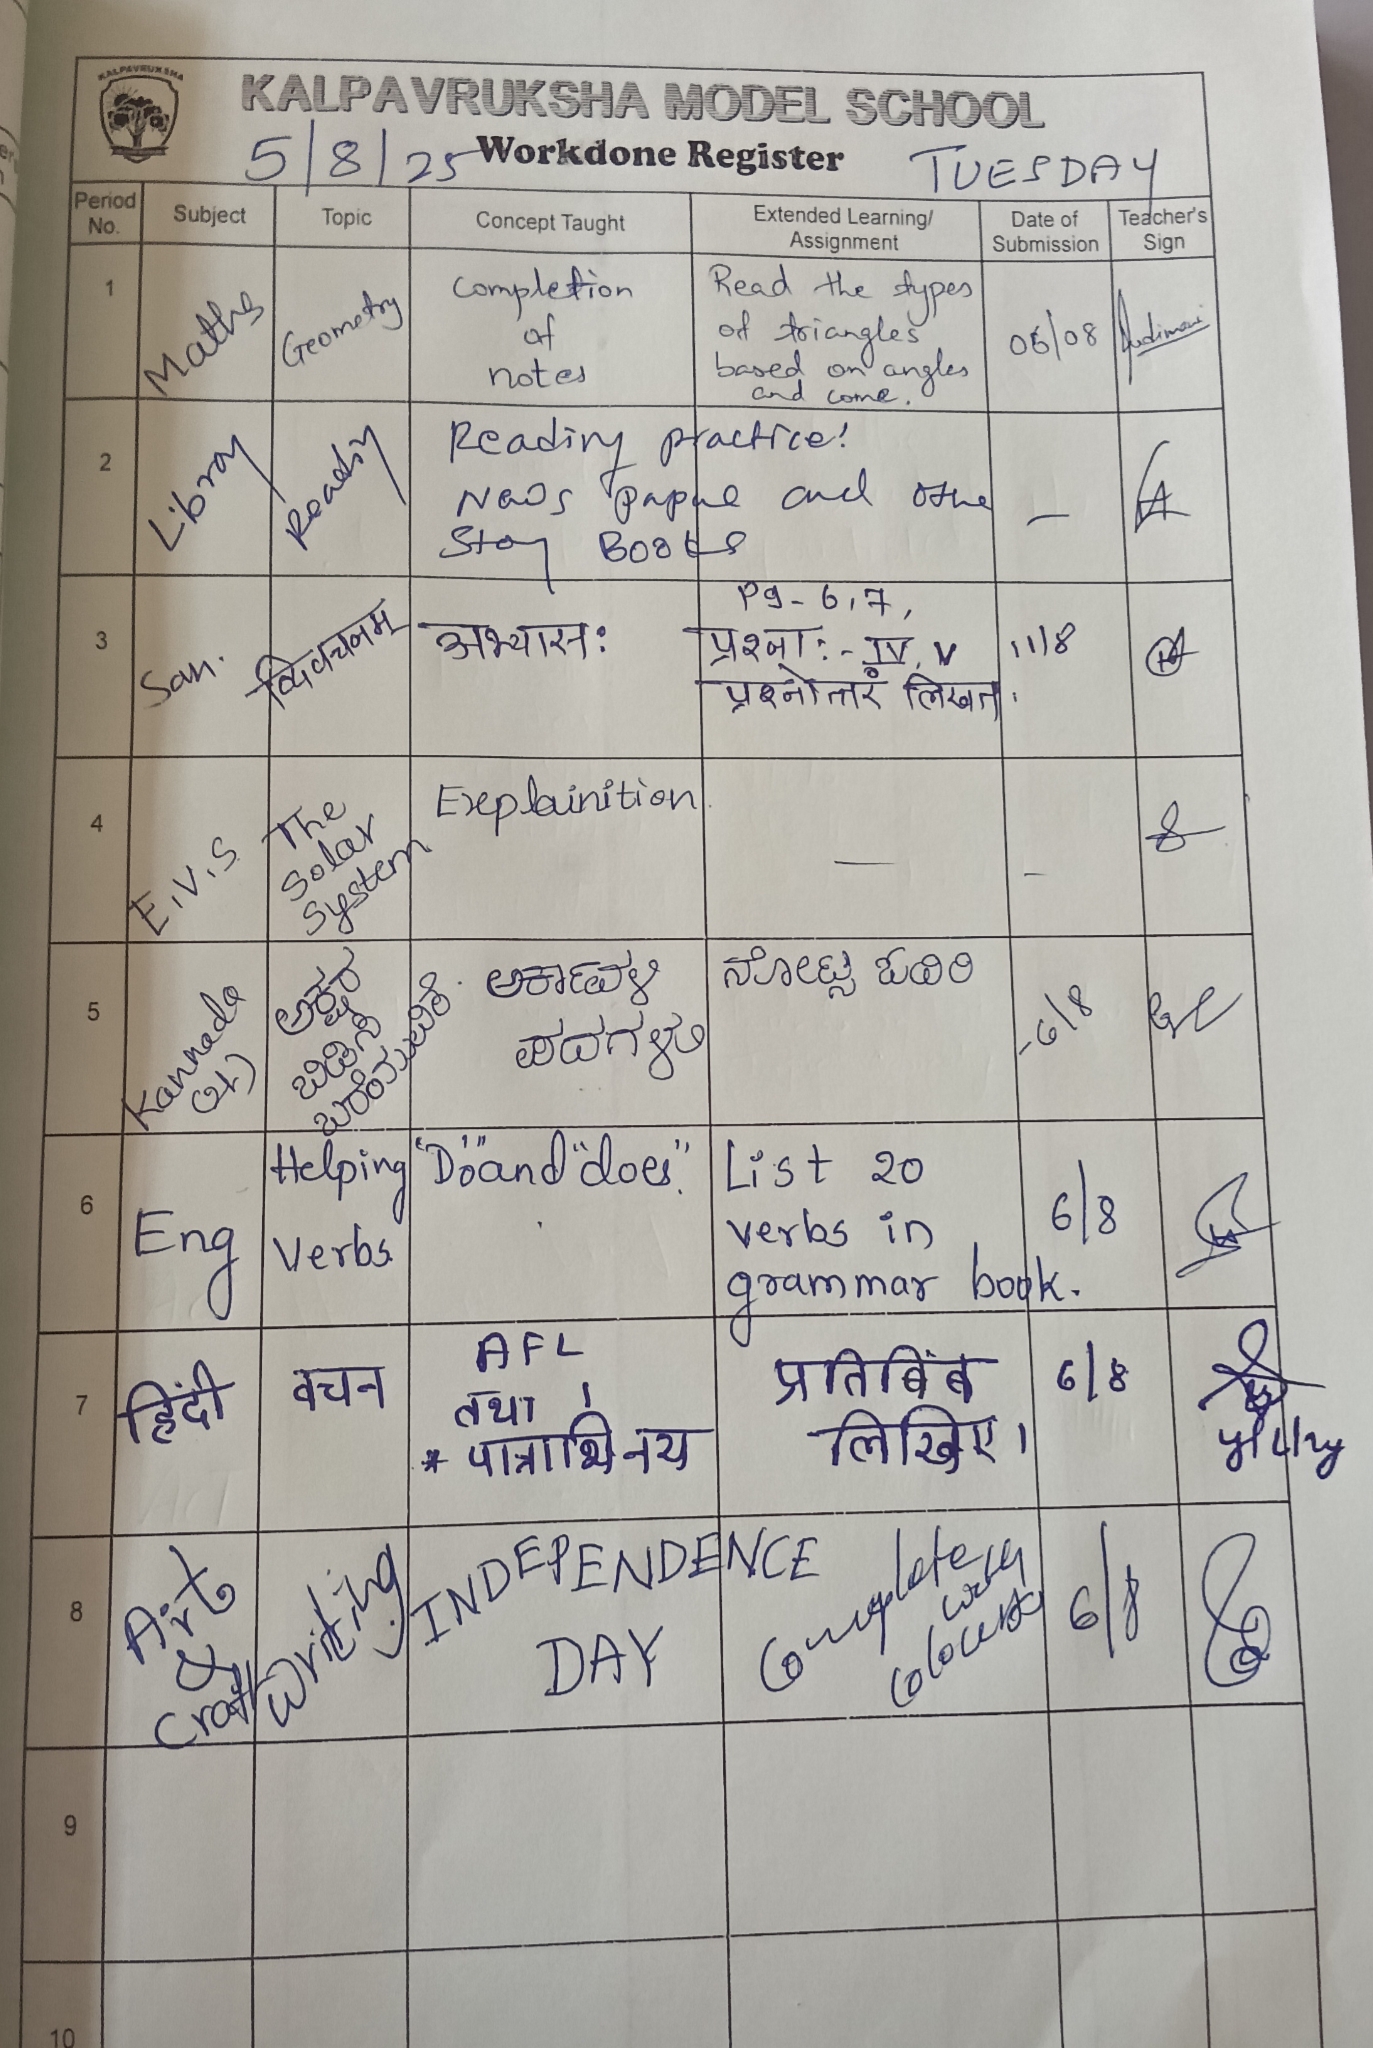 KALPAVRUKSHA
KALPAVRUKSHA MODEL SCHOOL
5/8/25 Workdone Register TUESDAY
Period No. Subject Topic Concept Taught Extended Learning/ Assignment Date of Submission Teacher's Sign
1 Maths Geometry Completion of notes Read the types of triangles based on angles and come. 06/08
2 Library Reading Reading practice! News papae and othe Stoy Books —
3 San. द्विवचनम् अभ्यासः Pg - 6,7, प्रश्नाः - IV, V प्रश्नोत्तरं लिखत. 11/8
4 E.V.S The Solar System Explainition — -
5 Kannada (2L) ಅಕ್ಷರ ಬಿಡಿಸಿ ಬರೆಯುವಿಕೆ. ಅರ್ಕಾವಳಿ ಪದಗಳು ನೋಟ್ಸ ಓದಿರಿ -6/8
6 Eng Helping Verbs "Do" and "does". List 20 verbs in grammar book. 6/8
7 हिंदी वचन AFL तथा * पात्राभिनय प्रतिबिंब लिखिए। 6/8
8 Art & Craft Writing INDEPENDENCE DAY Complete with colours 6/8
9
10